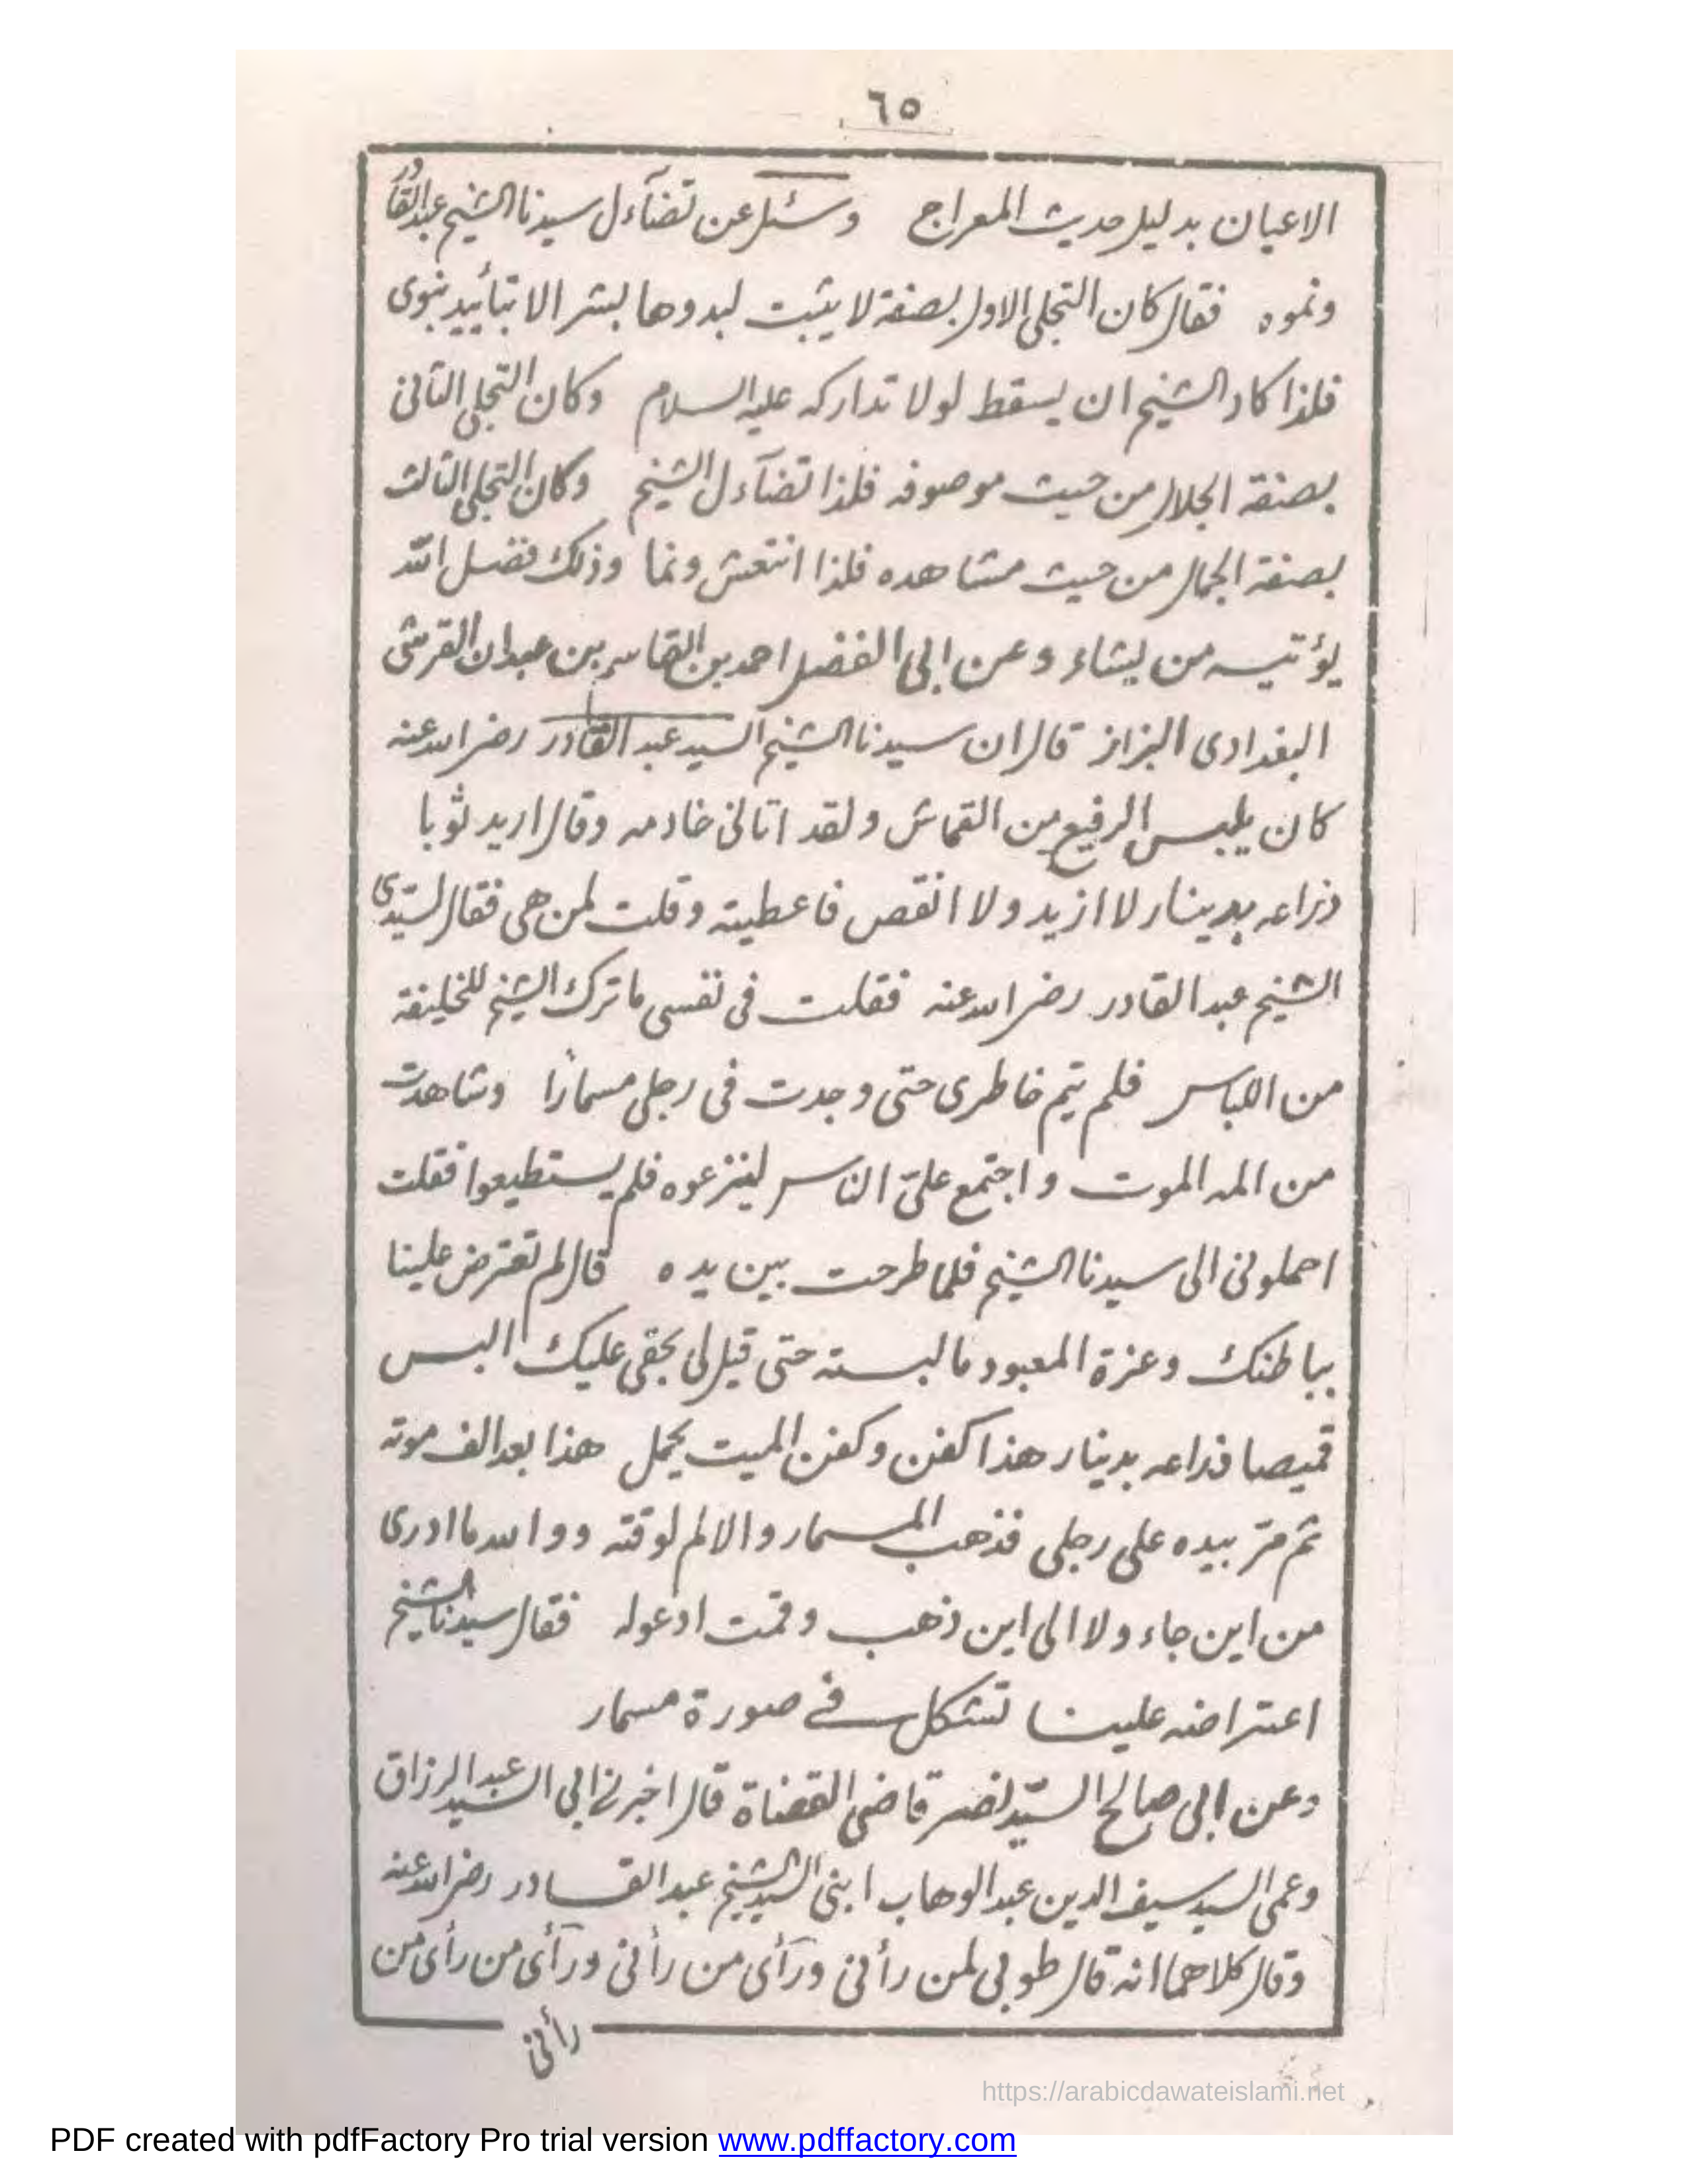 ٦٥
الاعيان بدليل حديث المعراج وسئل عن تضآءل سيدنا الشيخ عبد القادر
ونموه فقال كان التجلى الاول بصفة لا يثبت لبدوها بشر الا بتأييد نبوى
فلذا كاد الشيخ ان يسقط لولا تداركه عليه السلام وكان التجلى الثانى
بصفة الجلال من حيث موصوفه فلذا تضآءل الشيخ وكان التجلى الثالث
بصفة الجمال من حيث مشاهده فلذا انتعش ونما وذلك فضل الله
يؤتيه من يشاء وعن ابى الفضل احمد بن القاسم بن عبدان القرشى
البغدادى البزاز قال ان سيدنا الشيخ السيد عبد القادر رضى الله عنه
كان يلبس الرفيع من القماش ولقد اتانى خادمه وقال اريد ثوبا
ذراعه بدينار لا ازيد ولا انقص فاعطيته وقلت لمن هى فقال لسيّدى
الشيخ عبد القادر رضى الله عنه فقلت فى نفسى ما ترك الشيخ للخليفة
من اللباس فلم يتم خاطرى حتى وجدت فى رجلى مسمارًا وشاهدت
من المه الموت واجتمع علىّ الناس لينزعوه فلم يستطيعوا فقلت
احملونى الى سيدنا الشيخ فلما طرحت بين يده قال لم تعترض علينا
بباطنك وعزة المعبود ما لبسته حتى قيل لى بحقى عليك البس
قميصا فذراعه بدينار هذا كفن وكفن الميت يجمل هذا بعد الف موته
ثم مرّ بيده على رجلى فذهب المسمار والالم لوقته ووالله ما ادرى
من اين جاء ولا الى اين ذهب وقمت ادعوله فقال سيدنا الشيخ
اعتراضه علينا تشكل فى صورة مسمار
وعن ابى صالح السيّد نصر قاضى القضاة قال اخبرنى ابى السيد عبد الرزاق
وعمى السيد سيف الدين عبد الوهاب ابنى السيد الشيخ عبد القادر رضى الله عنه
وقال كلاهما انه قال طوبى لمن رأنى ورآى من رأنى ورآى من رأى من
رأنى
https://arabicdawateislami.net
PDF created with pdfFactory Pro trial version www.pdffactory.com